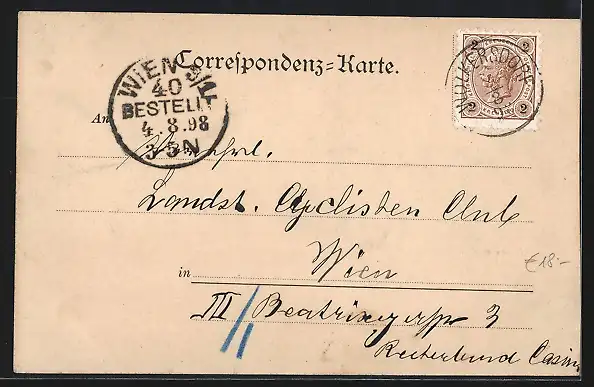 Correspondenz=Karte.
WIEN 3/1
40
BESTELLT
4.8.98
3-5N
2 2
WOLKERSDORF
2 2
An
Landst. Cyclisten Club
in Wien
III/ Beatrixgasse 3
Reiterbund Casino
€18.-